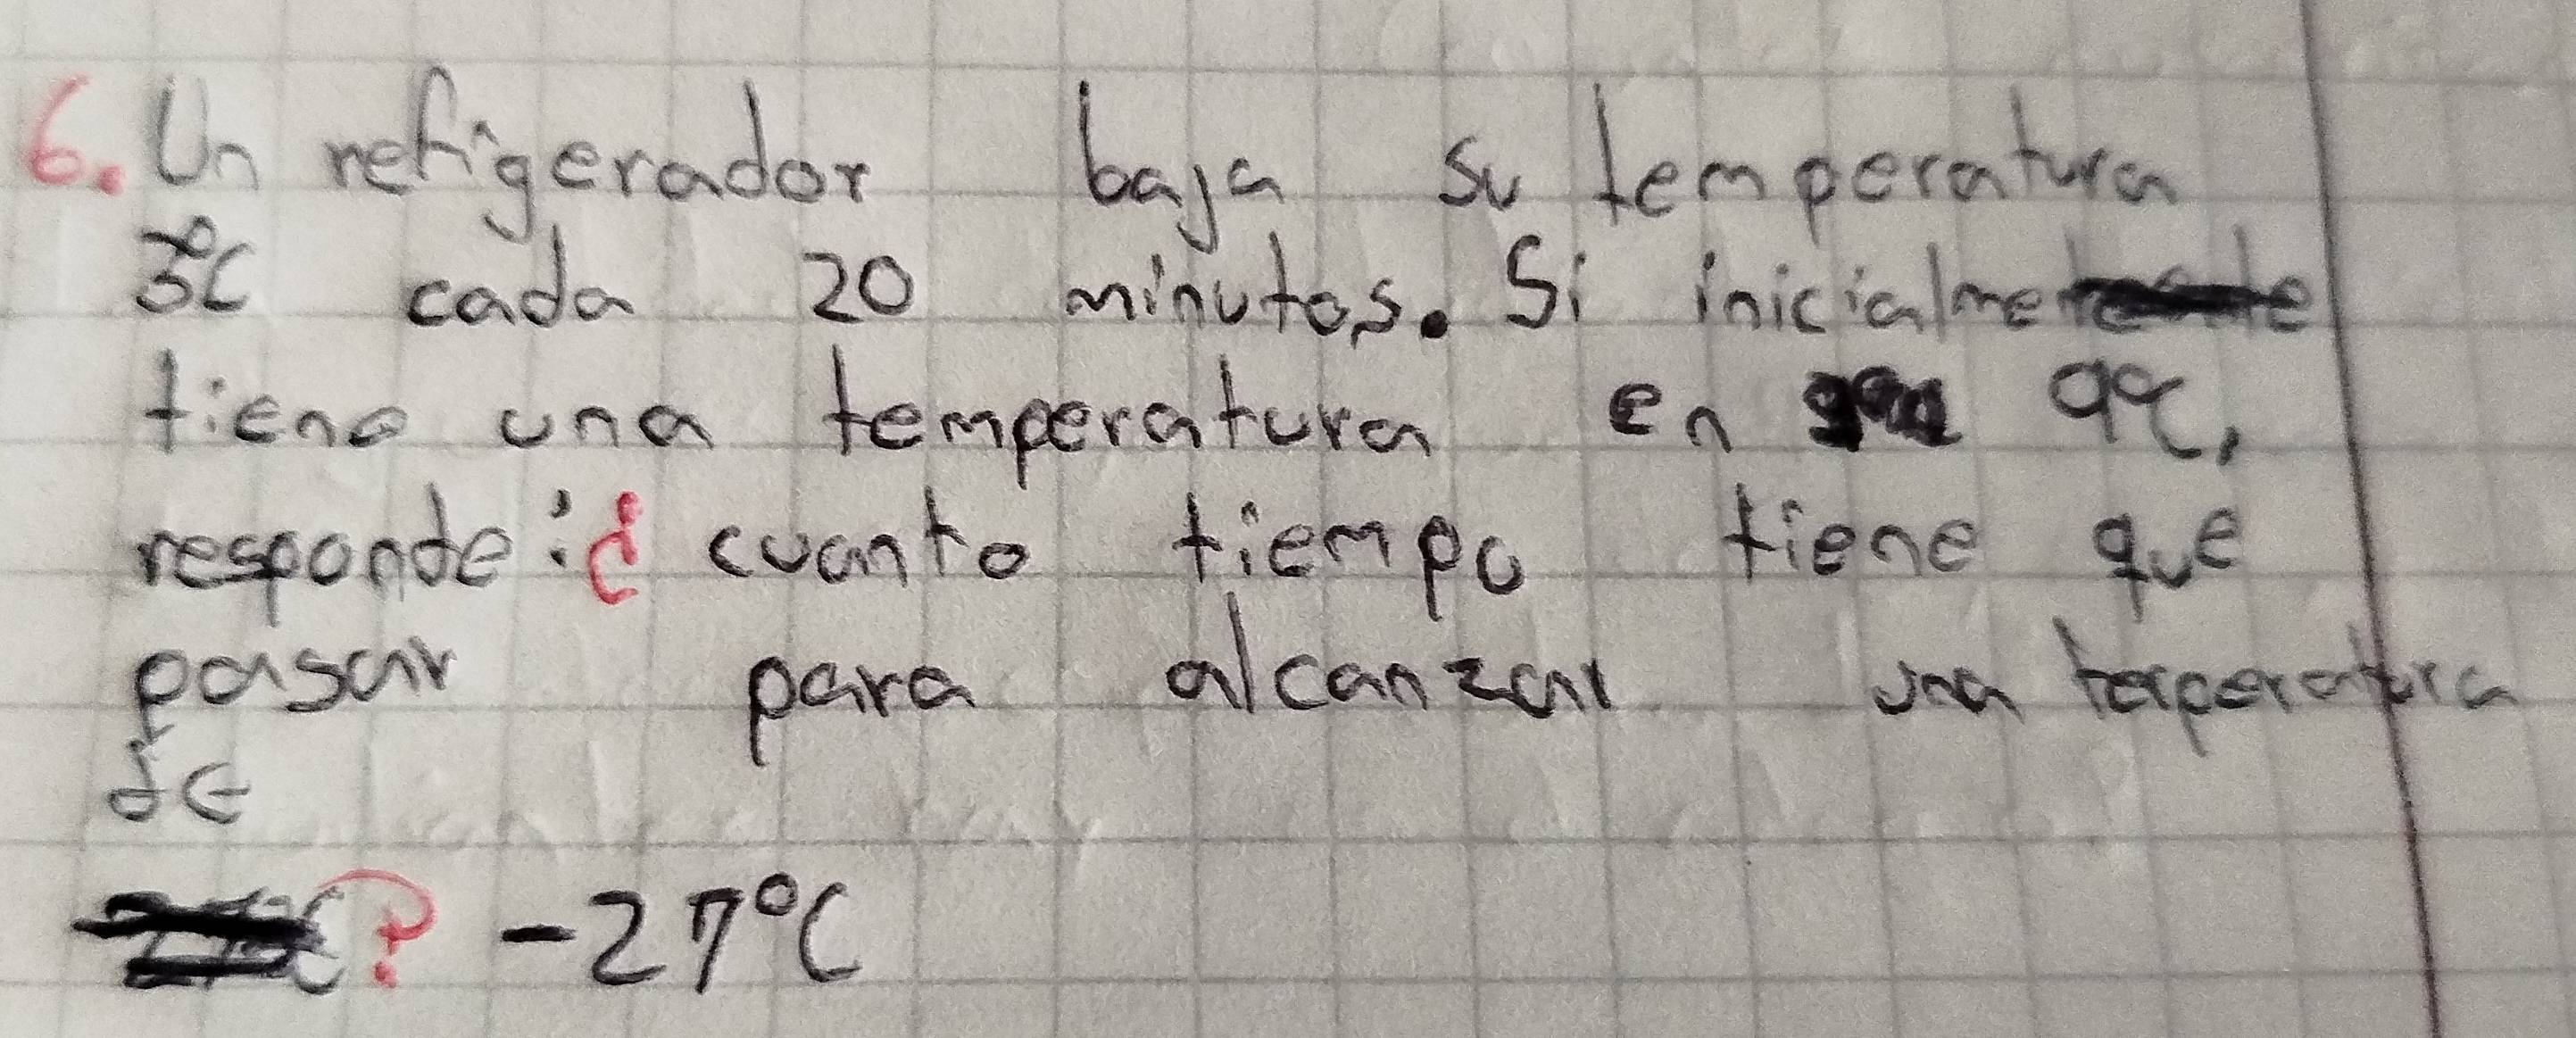 6. Un refrigerador baja su temperatura
3°C cada 20 minutos. Si inicialmente
tiene una temperatura en 9°C,
responde: ¿cuanto tiempo tiene que
pasar para alcanzar una temperatura
de
? -27°C